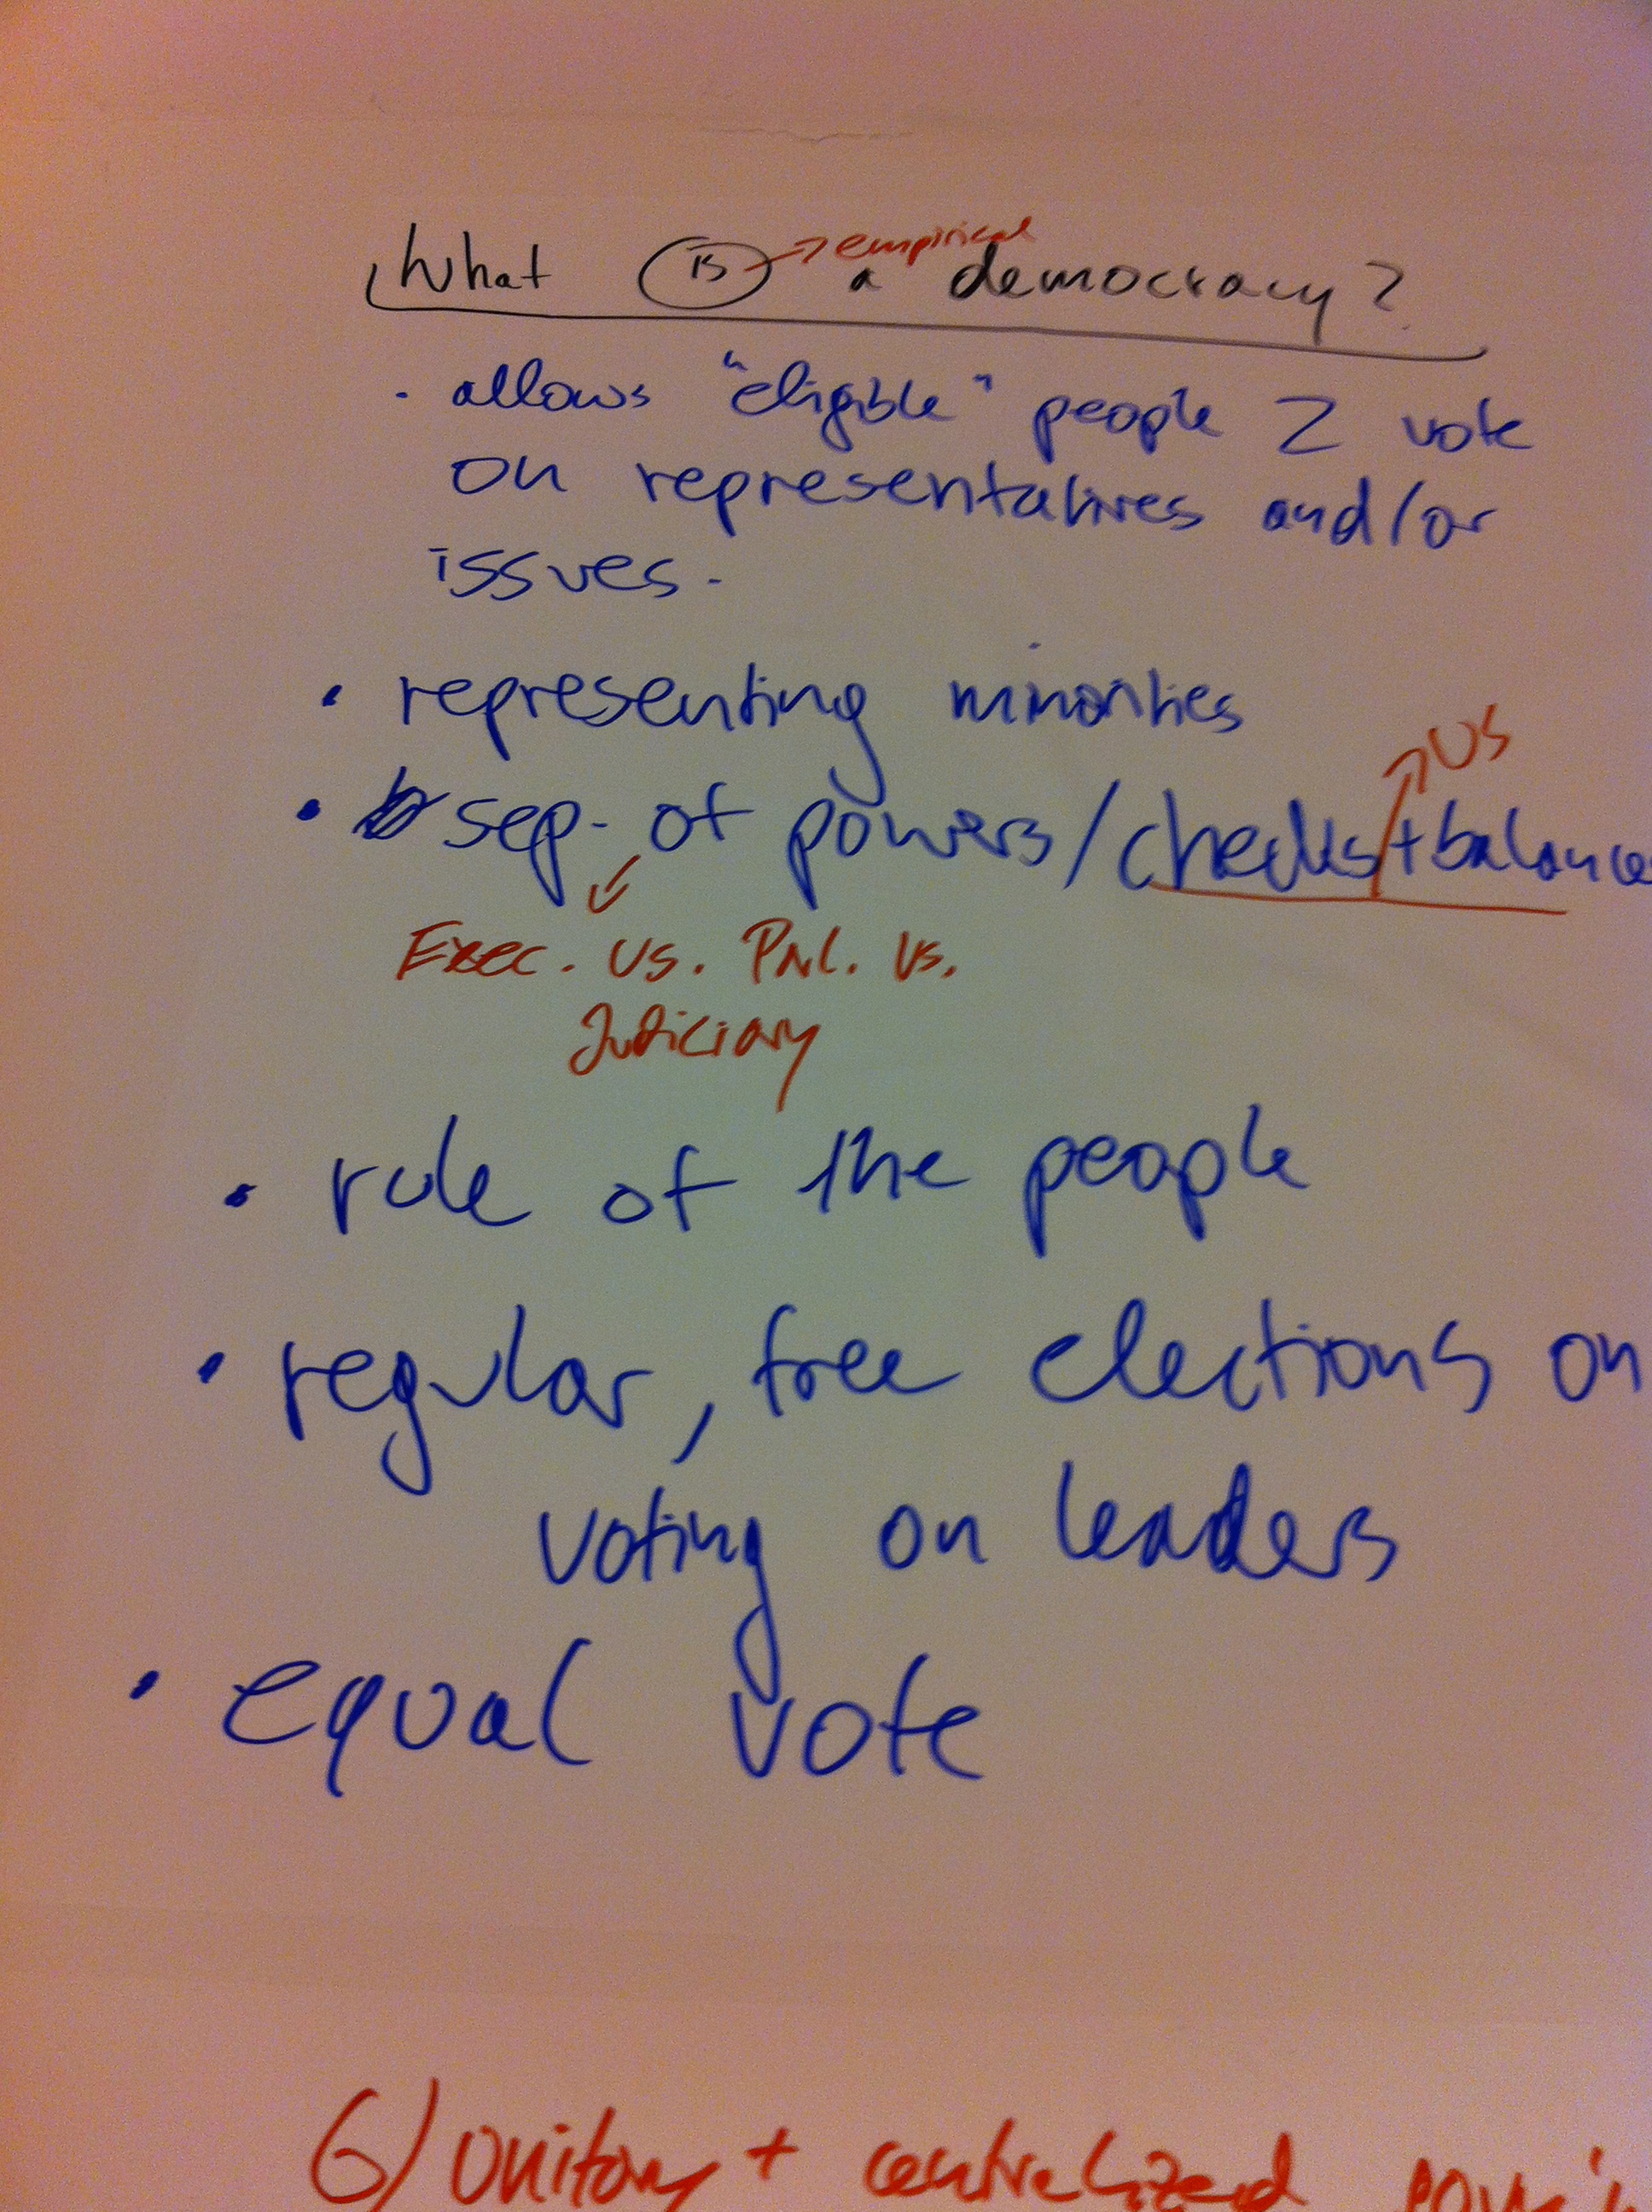 What is → empirical a democracy?
· allows "eligible" people 2 vote
on representatives and/or
issues.
• representing minorities
→ US
• sep. of powers/checks+balance
Exec. vs. Parl. vs.
Judiciary
• rule of the people
• regular, free elections on
voting on leaders
• equal vote
6) unitary + centralized